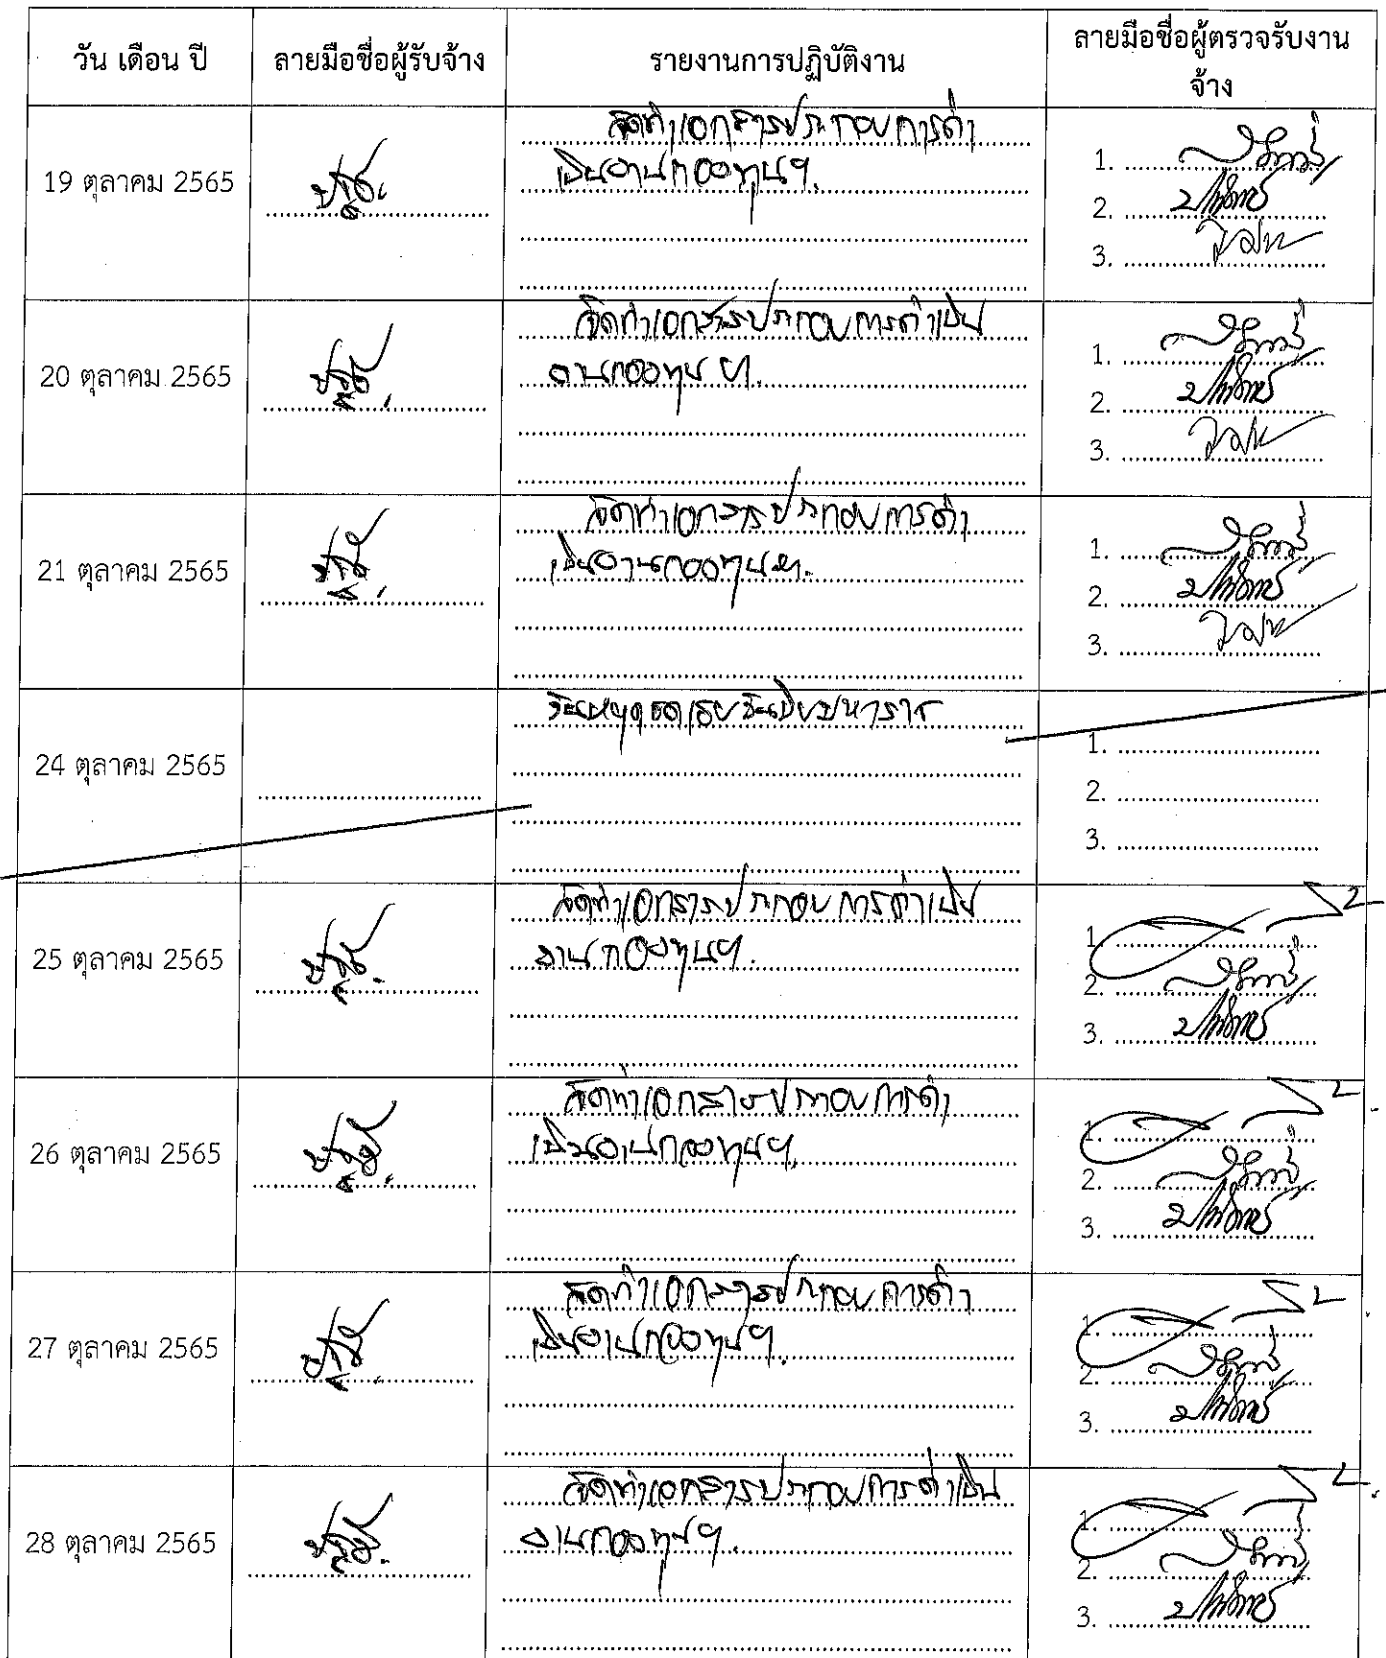 วัน เดือน ปี
ลายมือชื่อผู้รับจ้าง
รายงานการปฏิบัติงาน
ลายมือชื่อผู้ตรวจรับงาน
จ้าง
19 ตุลาคม 2565
จัดทำเอกสารประกอบการดำ
เนินงานกองทุนฯ.
1.
2.
3.
20 ตุลาคม 2565
จัดทำเอกสารประกอบการดำเนิน
งานกองทุนฯ.
1.
2.
3.
21 ตุลาคม 2565
จัดทำเอกสารประกอบการดำ
เนินงานกองทุนฯ.
1.
2.
3.
24 ตุลาคม 2565
วันหยุดชดเชยวันปิยมหาราช
1.
2.
3.
25 ตุลาคม 2565
จัดทำเอกสารประกอบการดำเนิน
งานกองทุนฯ.
1.
2.
3.
26 ตุลาคม 2565
จัดทำเอกสารประกอบการดำ
เนินงานกองทุนฯ.
1.
2.
3.
27 ตุลาคม 2565
จัดทำเอกสารประกอบการดำ
เนินงานกองทุนฯ.
1.
2.
3.
28 ตุลาคม 2565
จัดทำเอกสารประกอบการดำเนิน
งานกองทุนฯ.
1.
2.
3.